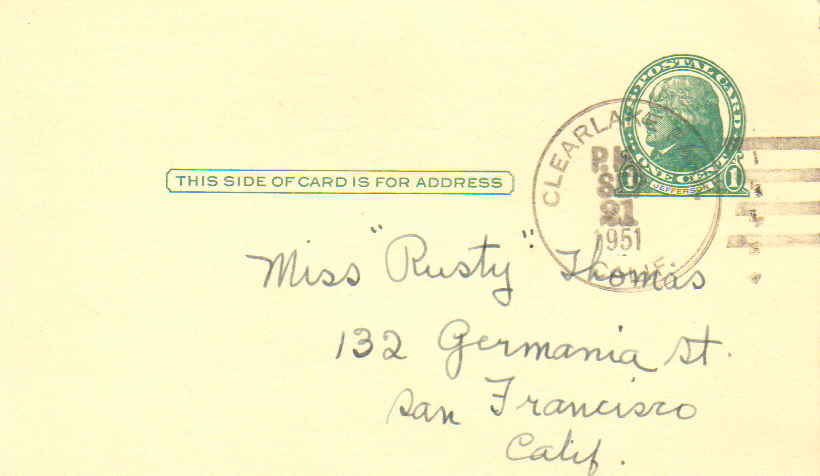 U.S. POSTAL CARD
ONE CENT
1 JEFFERSON 1
CLEARLAKE
P.M.
21
1951
CALIF.
THIS SIDE OF CARD IS FOR ADDRESS
Miss "Rusty" Thomas
132 Germania St.
San Francisco
Calif.